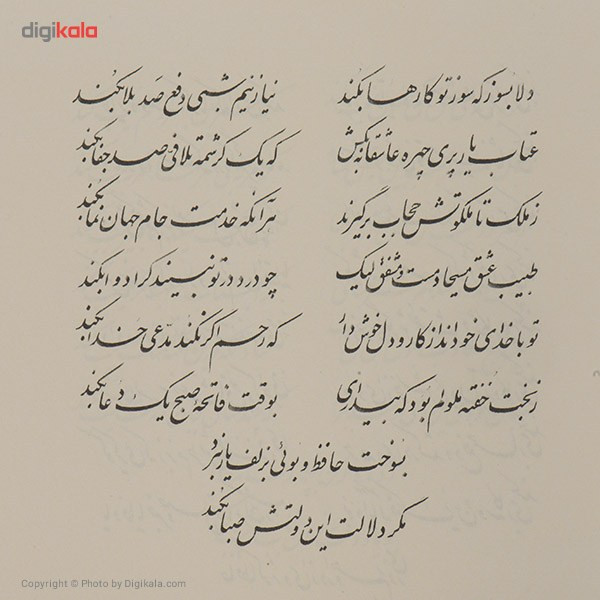 digikala
دلا بسوز که سوز تو کارها بکند نیاز نیم شبی دفع صد بلا بکند
عتاب یار پری چهره عاشقانه بکش که یک کرشمه تلافی صد جفا بکند
ز ملک تا ملکوتش حجاب برگیرند هر آنکه خدمت جام جهان نما بکند
طبیب عشق مسیحا دمست و مشفق لیک چو درد در تو نبیند کرا دوا بکند
تو با خدای خود انداز کار و دل خوش دار که رحم اگر نکند مدعی خدا بکند
ز بخت خفته ملولم بود که بیداری بوقت فاتحهٔ صبح یک دعا بکند
بسوخت حافظ و بوئی بزلف یار نبرد
مگر دلالت این دولتش صبا بکند
Copyright © Photo by Digikala.com